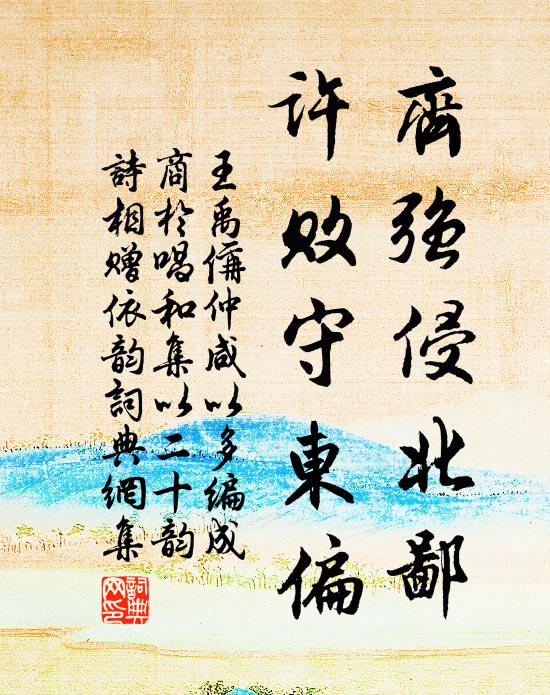 齊強侵北鄙
許敗守東偏
王禹偁仲咸以多編成
商於唱和集以二十韵
詩相贈依韵詞典網集
詞典網印